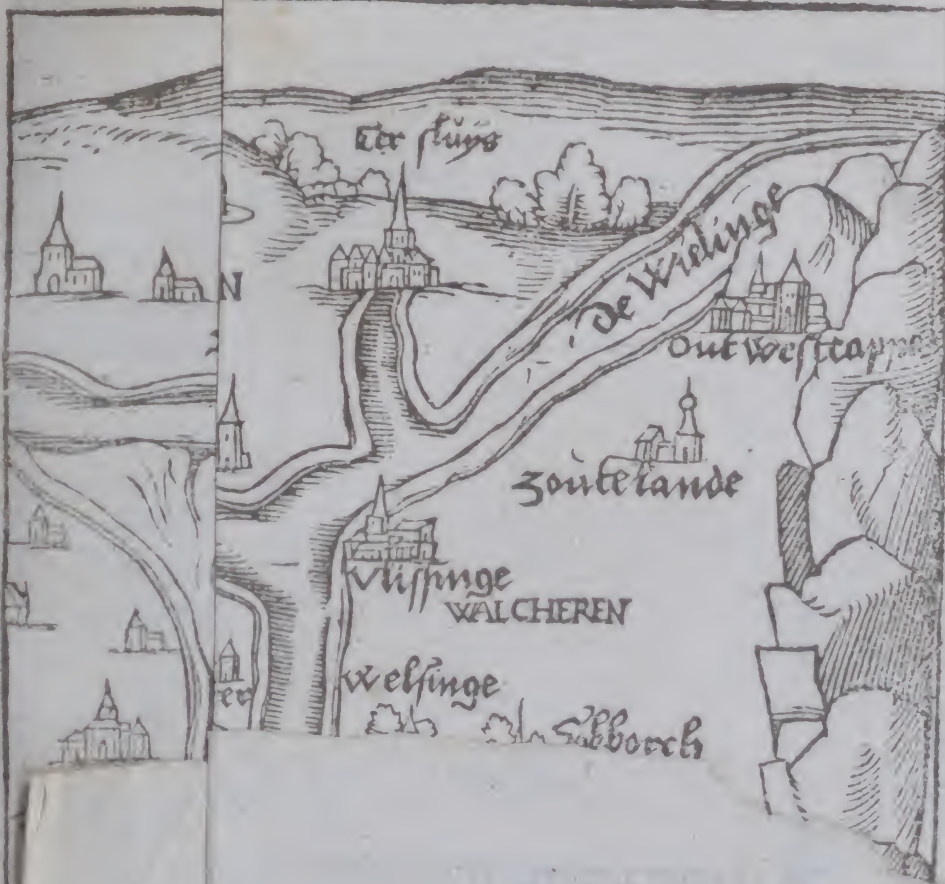 Ter sluys
De Wielinge
Out westcappe
Zoutelande
Vlissinge
WALCHEREN
Welsinge